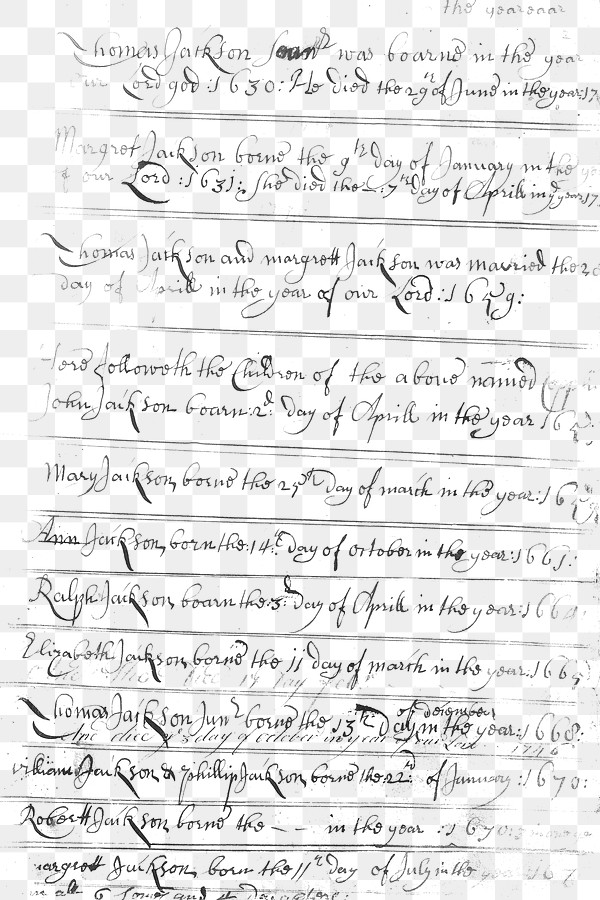 the year
Thomas Jackson was boarne in the year
our Lord god :1630: He died the 29th of June in the year:17
Margret Jackson borne the 9th day of January in the
of our Lord :1631: She died the - :7th day of Aprill in ye year 17
Thomas Jackson and margrett Jackson was married the
day of Aprill in the year of our Lord :1659:
Here followeth the Children of the aboue named
John Jackson boarn: 2d day of Aprill in the year 16
Mary Jackson, borne the 25th day of march in the year:16
Ann Jackson, born the:14th: day of october in the year:1661:
Ralph Jackson boarn the:3d day of Aprill in the year:166
Elizabeth Jackson, borne the 11 day of march in the year:166
of december
Thomas Jackson Junr borne the 13th Day in the year:1668:
day of october in year of our Lord
william Jackson & phillip Jackson borne the:22d: of January :1670:
Robertt Jackson borne the - - in the year :16
margrett Jackson, born the 11th day of July in the 167
in all 6 sones and 4 Daughters: